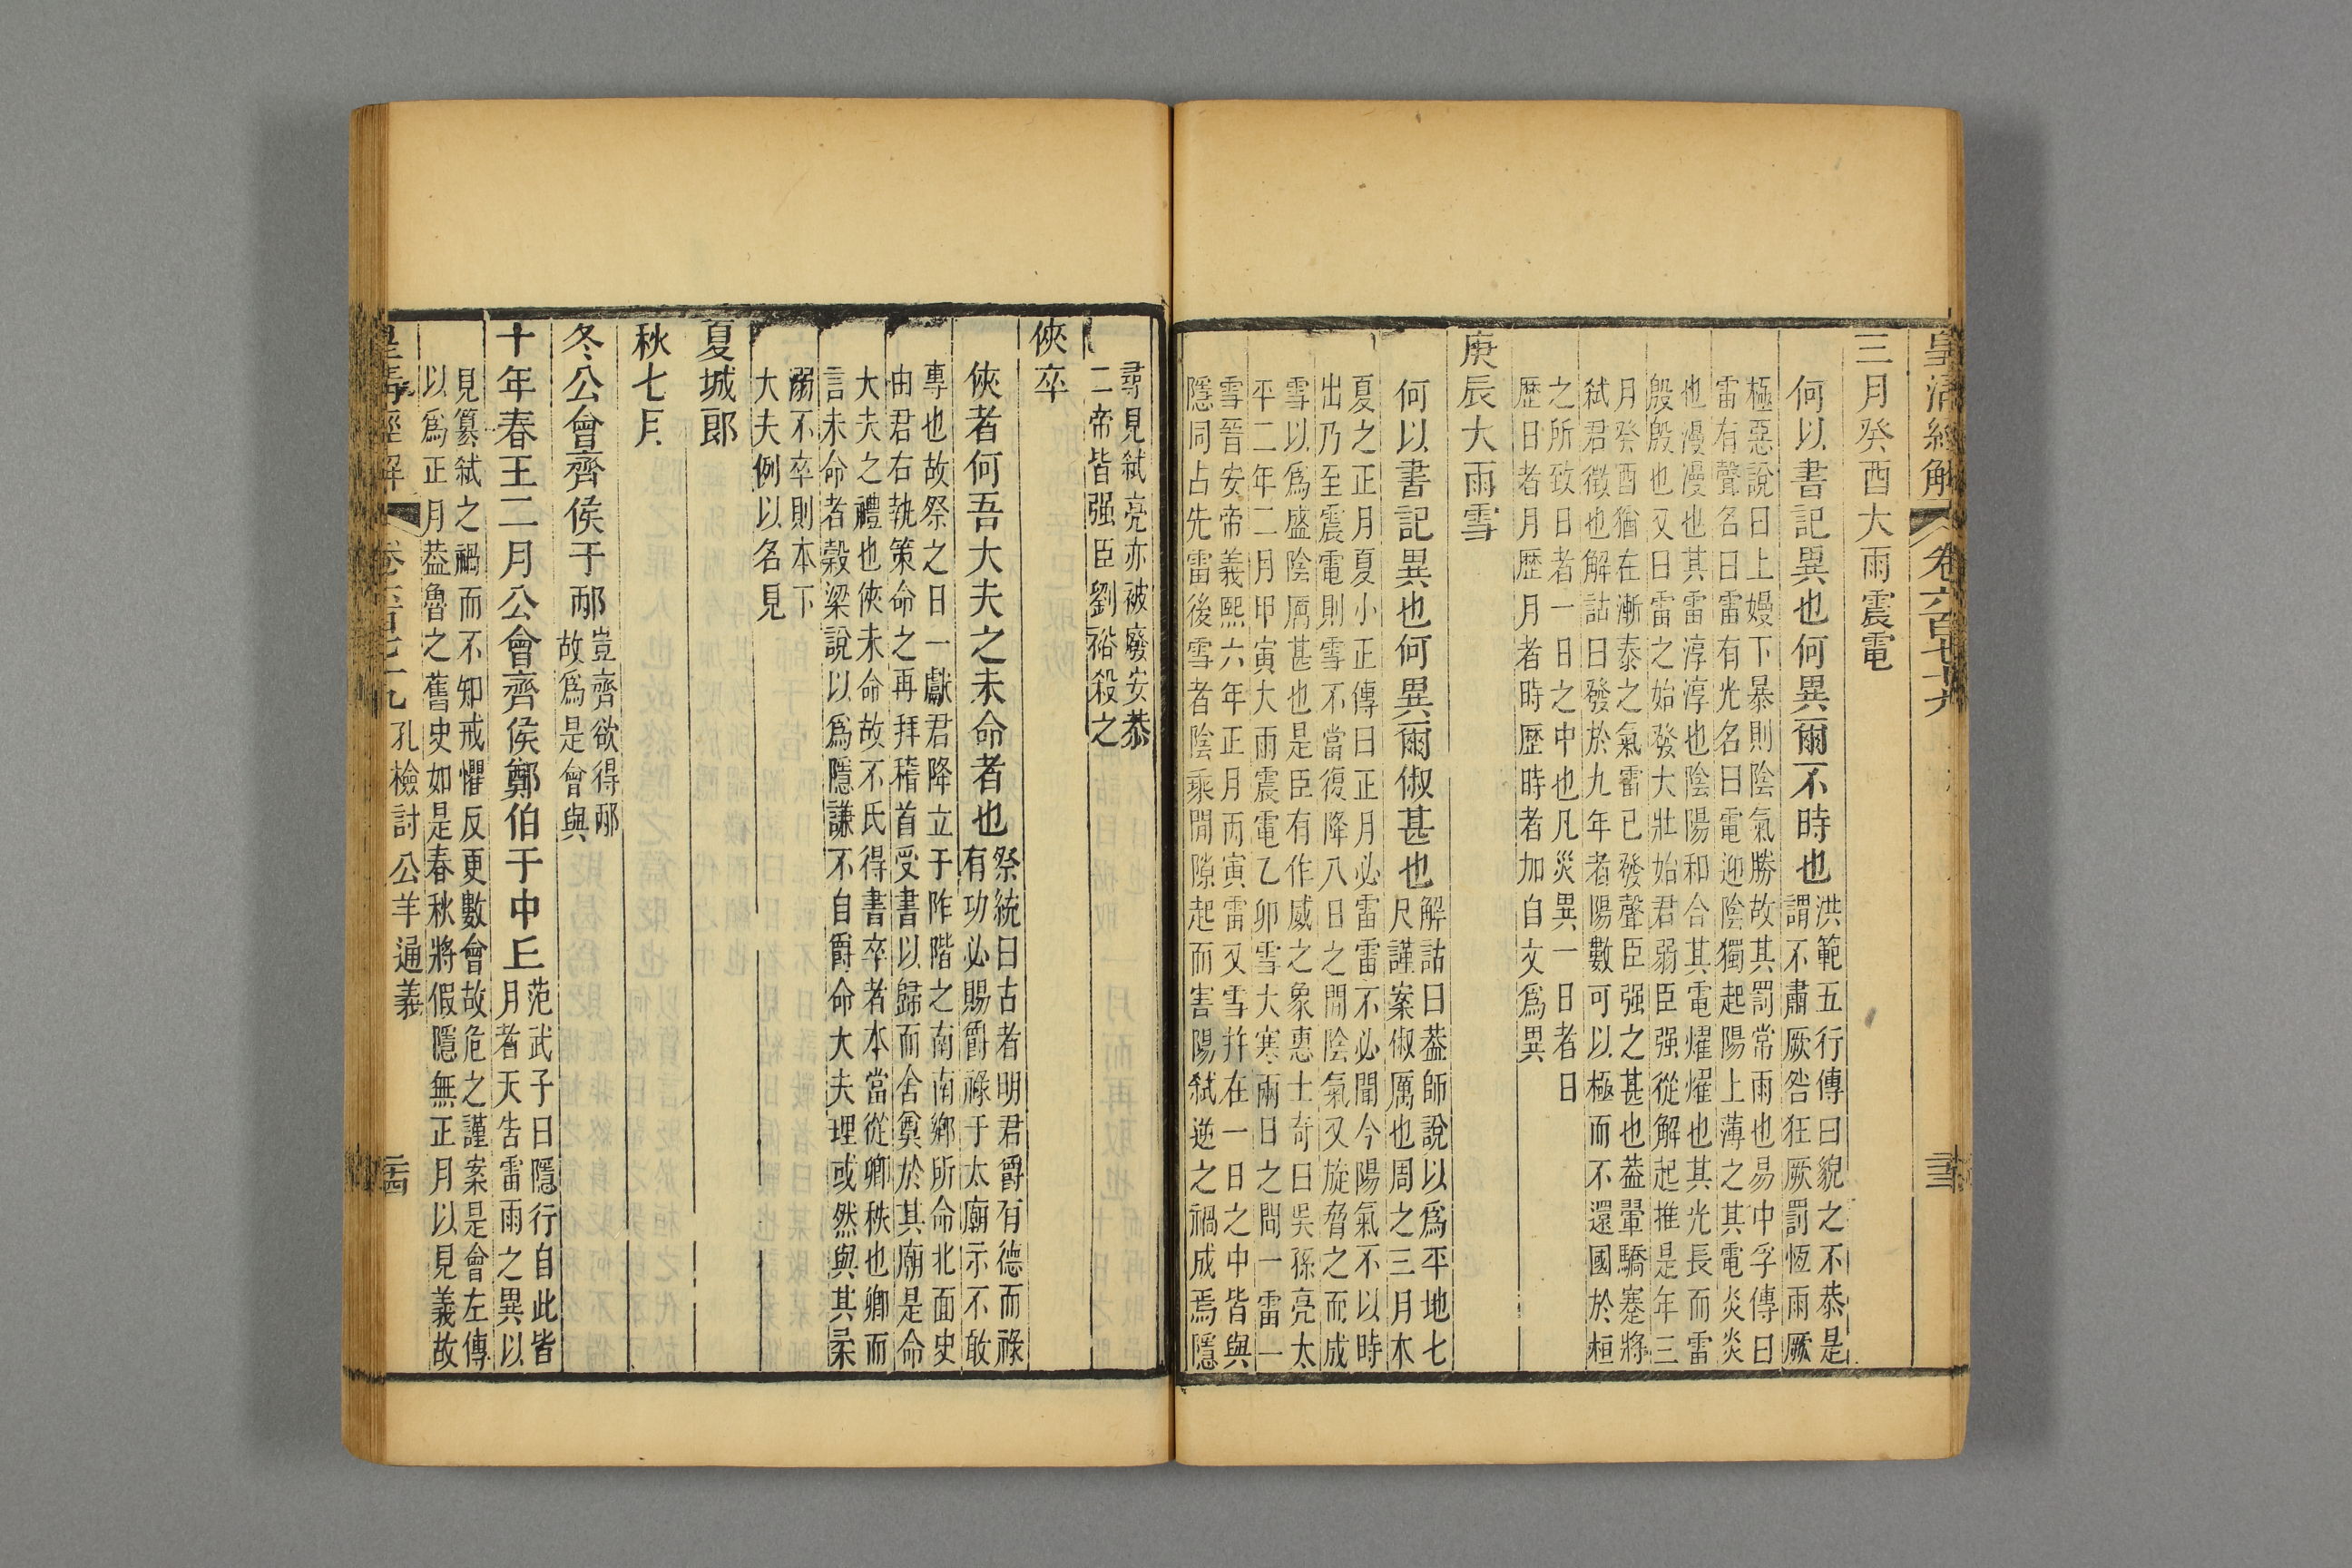 皇清經解 卷六百七十九
三月癸酉大雨震電
何以書記異也何異爾不時也
洪範五行傳曰貌之不恭是
謂不肅厥咎狂厥罰恆雨厥
極惡說曰上嫚下暴則陰氣勝故其罰常雨也易中孚傳曰
雷有聲名曰雷有光名曰電迎陰獨起陽上薄之其電炎炎
也漫漫也其雷淳淳也陰陽和合其電燿燿也其光長而雷
殷殷也又曰雷之始發大壯始君弱臣强從解起推是年三
月癸酉猶在漸泰之氣雷已發聲臣强之甚也葢翬驕蹇將
弑君徵也解詁曰發於九年者陽數可以極而不還國於桓
之所致日者一日之中也凡災異一日者日
歷日者月歷月者時歷時者加自文爲異
庚辰大雨雪
何以書記異也何異爾俶甚也
解詁曰葢師說以爲平地七
尺謹案俶厲也周之三月木
夏之正月夏小正傳曰正月必雷雷不必聞今陽氣不以時
出乃至震電則雪不當復降八日之閒陰氣又旋脅之而成
雪以爲盛陰厲甚也是臣有作威之象惠士奇曰吳孫亮太
平二年二月甲寅大雨震電乙卯雪大寒兩日之間一雷一
雪晉安帝義熙六年正月丙寅雷又雪幷在一日之中皆與
隱同占先雷後雪者陰乘閒隙起而害陽弑逆之禍成焉隱
尋見弑亮亦被廢安恭
二帝皆强臣劉裕殺之
俠卒
俠者何吾大夫之未命者也
祭統曰古者明君爵有德而祿
有功必賜爵祿于太廟示不敢
專也故祭之日一獻君降立于阼階之南南鄉所命北面史
由君右執策命之再拜稽首受書以歸而舍奠於其廟是命
大夫之禮也俠未命故不氏得書卒者本當從卿秩也卿而
言未命者榖梁說以爲隱謙不自爵命大夫理或然與其柔
溺不卒則本下
大夫例以名見
夏城郎
秋七月
冬公會齊侯于邴
豈齊欲得邴
故爲是會與
十年春王二月公會齊侯鄭伯于中丘
范武子曰隱行自此皆
月者天告雷雨之異以
見簒弑之禍而不知戒懼反更數會故危之謹案是會左傳
以爲正月葢魯之舊史如是春秋將假隱無正月以見義故
皇清經解 卷六百七十九 孔檢討公羊通義